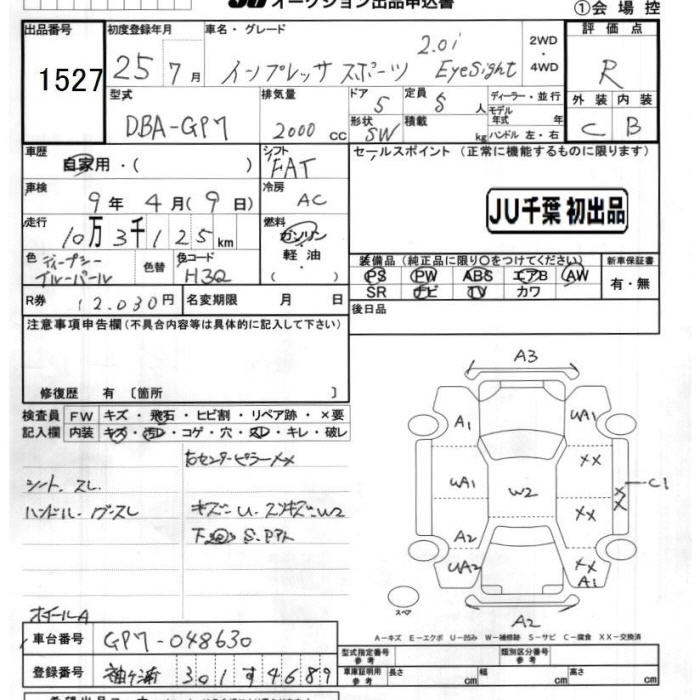 オークション出品申込書 ①会場控
出品番号 1527
初度登録年月 25 7月
車名・グレード インプレッサスポーツ 2.0i EyeSight
2WD・4WD
評価点 R
外装 C 内装 B
型式 DBA-GP7
排気量 2000 cc
ドア 5
形状 SW
定員 5人
積載 kg
ディーラー・並行
モデル年式 年式
ハンドル 左・右
車歴 自家用・( )
シフト FAT
セールスポイント (正常に機能するものに限ります)
車検 9年 4月(9日)
冷房 AC
JU千葉 初出品
走行 10万3千125km
燃料 ガソリン・軽油・( )
色 ディープシーブルーパール
色替
色コード H3Q
装備品 (純正品に限り○をつけてください)
PS PW ABS エアB AW
SR ナビ TV カワ
新車保証書 有・無
R券 12,030円
名変期限 月 日
後日品
注意事項申告欄(不具合内容等は具体的に記入して下さい)
修復歴 有 〔箇所 〕
検査員記入欄
FW キズ・飛石・ヒビ割・リペア跡・×要
内装 キズ・汚レ・コゲ・穴・スレ・キレ・破レ
右センターピラー××
シート、スレ
ハンドル、
キズ～U、
A3
A1 UA1
UA1 W2 ×× ×× C1
××
A2 ××
UA2 A1
A2
スペア
ホイールA
A－キズ E－エクボ U－凹み W－補修跡 S－サビ C－腐食 XX－交換済
車台番号 GP7-048630
登録番号 袖ヶ浦 301 す 4689
型式指定番号 参考
類別区分番号 参考
車庫証明用 参考 長さ cm 幅 cm 高さ cm